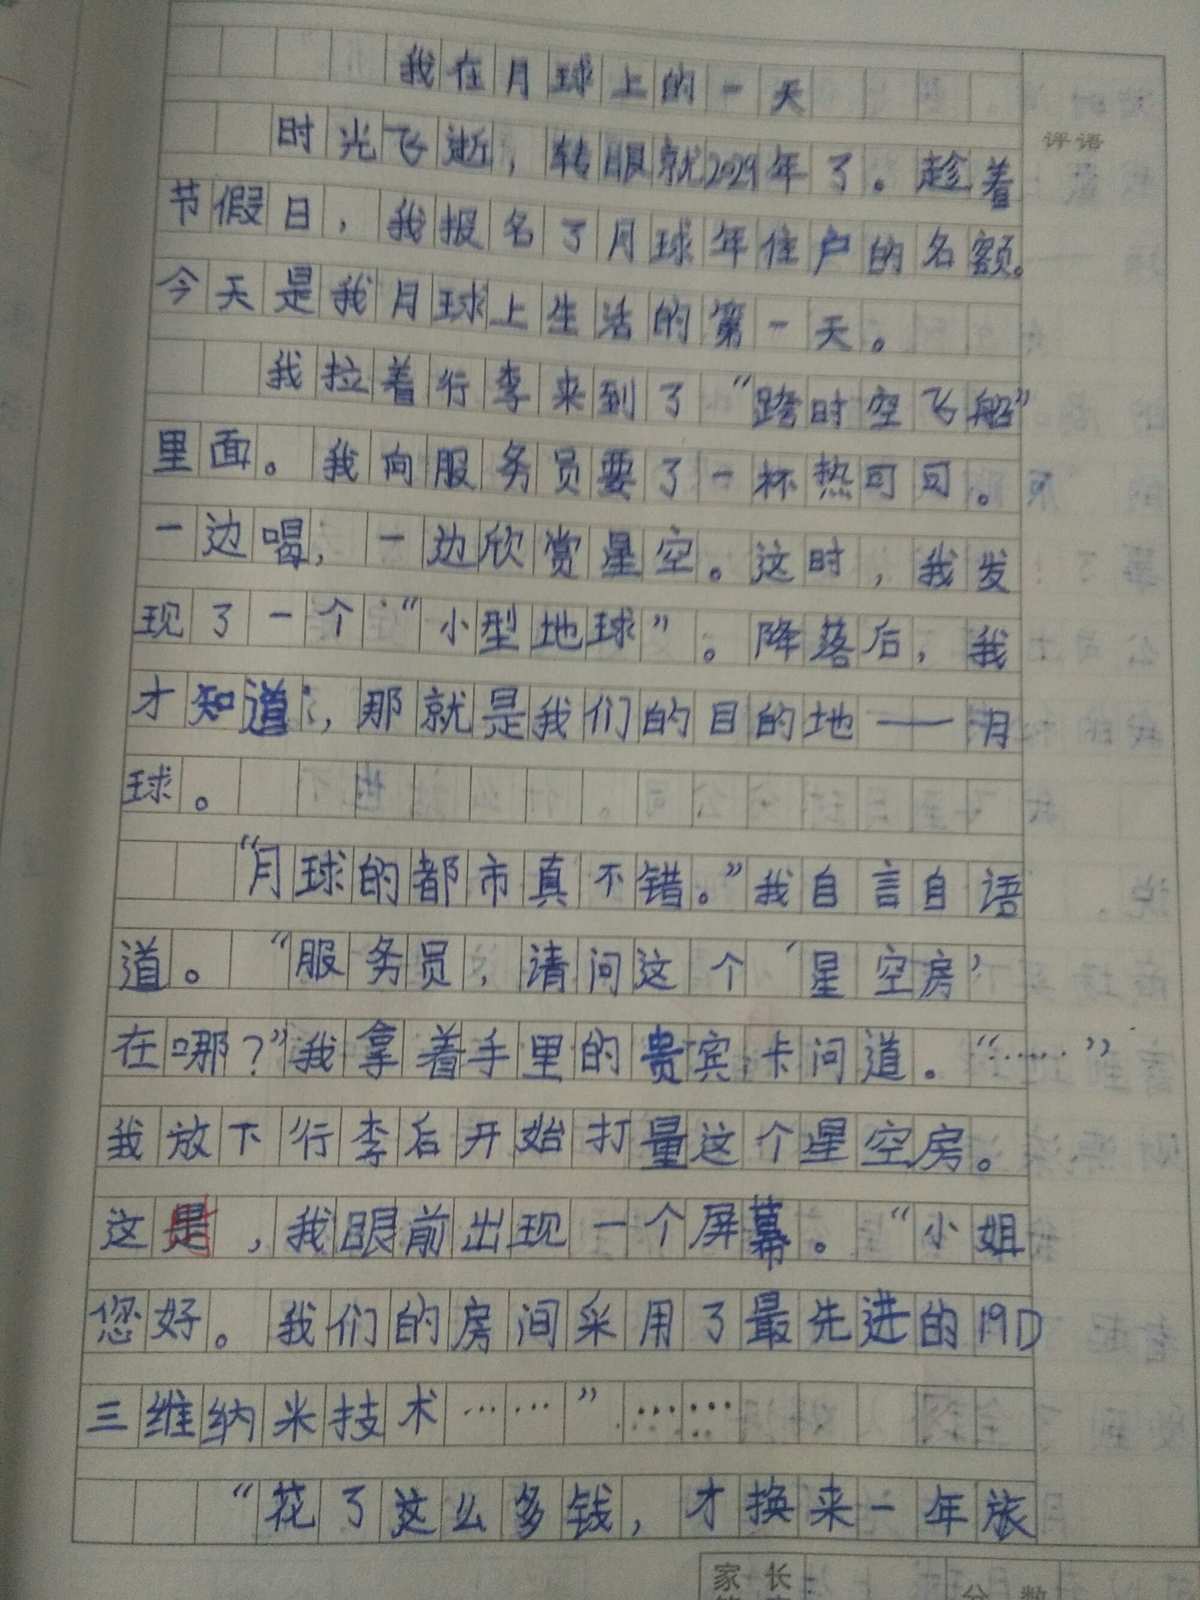 我在月球上的一天
评语
时光飞逝，转眼就2029年了。趁着
节假日，我报名了月球年住户的名额。
今天是我月球上生活的第一天。
我拉着行李来到了“跨时空飞船”
里面。我向服务员要了一杯热可可。
一边喝，一边欣赏星空。这时，我发
现了一个“小型地球”。降落后，我
才知道：，那就是我们的目的地——月
球。
“月球的都市真不错。”我自言自语
道。“服务员，请问这个‘星空房’
在哪？”我拿着手里的贵宾卡问道。“……”
我放下行李后开始打量这个星空房。
这是，我眼前出现一个屏幕。“小姐
您好。我们的房间采用了最先进的19D
三维纳米技术……”……
“花了这么多钱，才换来一年旅
家长
分数